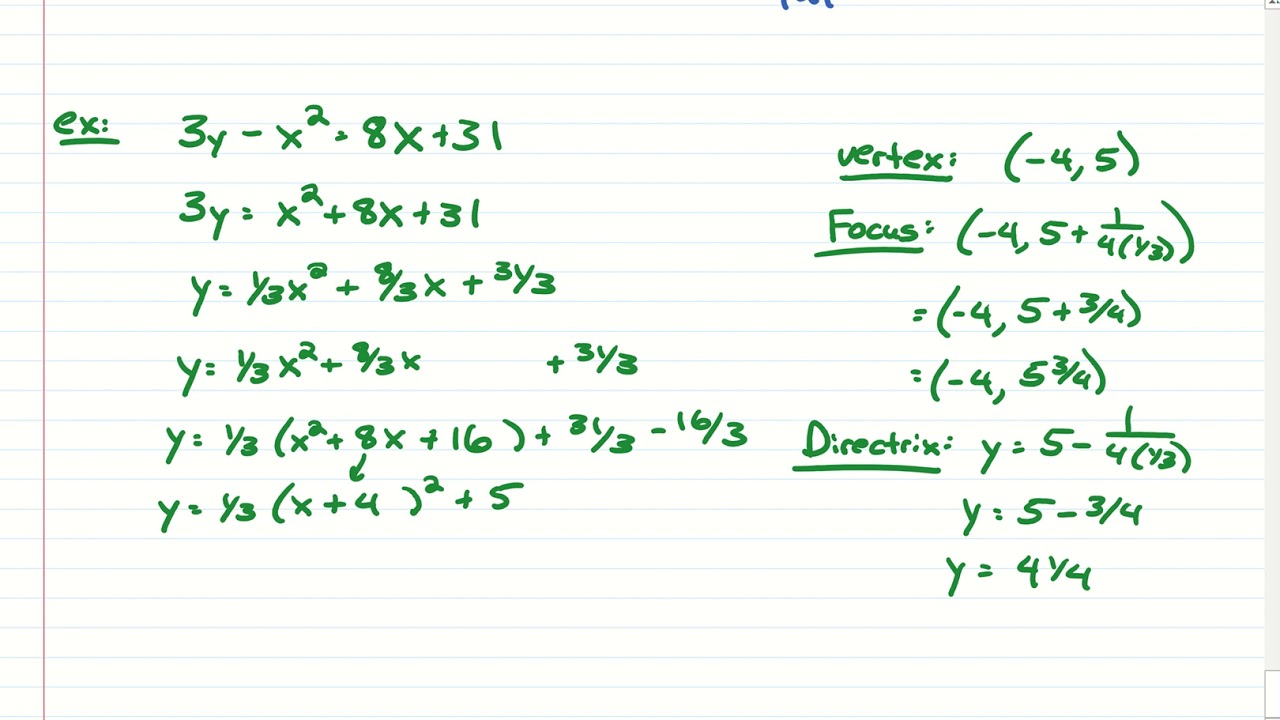 ex: 3y - x² = 8x + 31
3y = x² + 8x + 31
y = 1/3x² + 8/3x + 31/3
y = 1/3x² + 8/3x + 31/3
y = 1/3 (x² + 8x + 16) + 31/3 - 16/3
y = 1/3 (x + 4)² + 5
vertex: (-4, 5)
Focus: (-4, 5 + 1/4(1/3))
= (-4, 5 + 3/4)
= (-4, 5 3/4)
Directrix: y = 5 - 1/4(1/3)
y = 5 - 3/4
y = 4 1/4